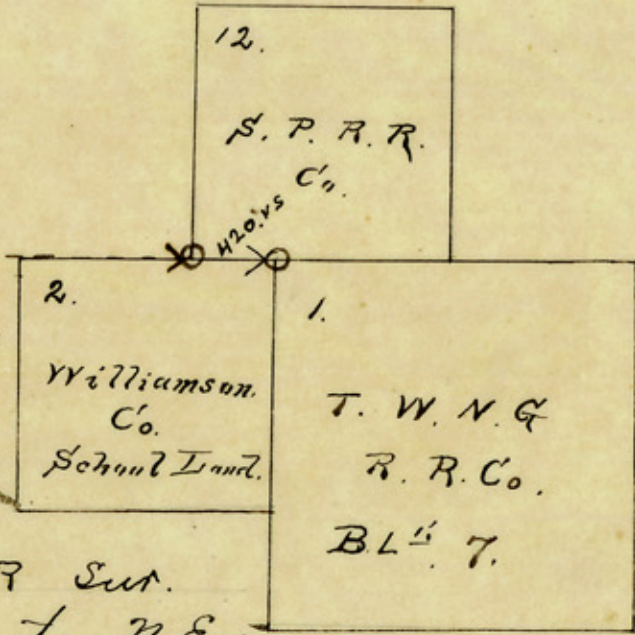 12.
S. P. R. R.
Co.
420 vs
2.
Williamson
Co.
School Land.
1.
T. W. N. G
R. R. Co.
BLK 7.
R Sur.
N E